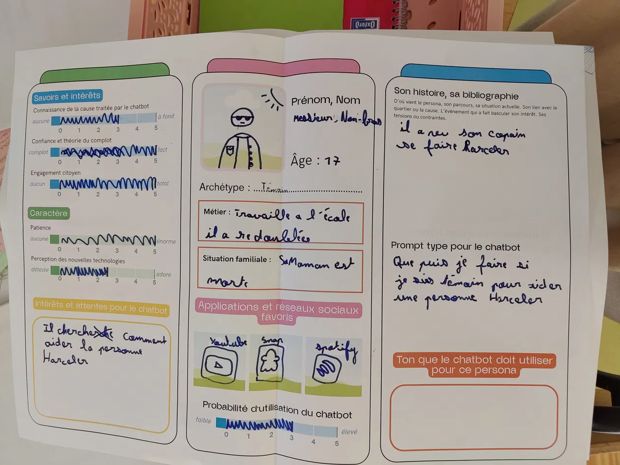 Oxford
Savoirs et intérêts
Connaissance de la cause traitée par le chatbot
aucune
à fond
0 1 2 3 4 5
Confiance et théorie du complot
complot
fact
0 1 2 3 4 5
Engagement citoyen
aucun
total
0 1 2 3 4 5
Caractère
Patience
aucune
énorme
0 1 2 3 4 5
Perception des nouvelles technologies
déteste
adore
0 1 2 3 4 5
Intérêts et attentes pour le chatbot
Il cherche comment
aider la personne
Harceler
Prénom, Nom
messieur,
Âge : 17
Archétype : Témoin
Métier : Travaille a l'école
il a redoublée
Situation familiale : Sa Maman est
morte
Applications et réseaux sociaux
favoris
Youtube
Snap
spotify
Probabilité d'utilisation du chatbot
faible
élevé
0 1 2 3 4 5
Son histoire, sa bibliographie
D'où vient le persona, son parcours, sa situation actuelle. Son lien avec le
quartier ou la cause. L'événement qui a fait basculer son intérêt. Ses
tensions ou contraintes.
il a vu son copain
se faire Harceler
Prompt type pour le chatbot
Que puis je faire si
je suis témoin pour aider
une personne Harceler
Ton que le chatbot doit utiliser
pour ce persona